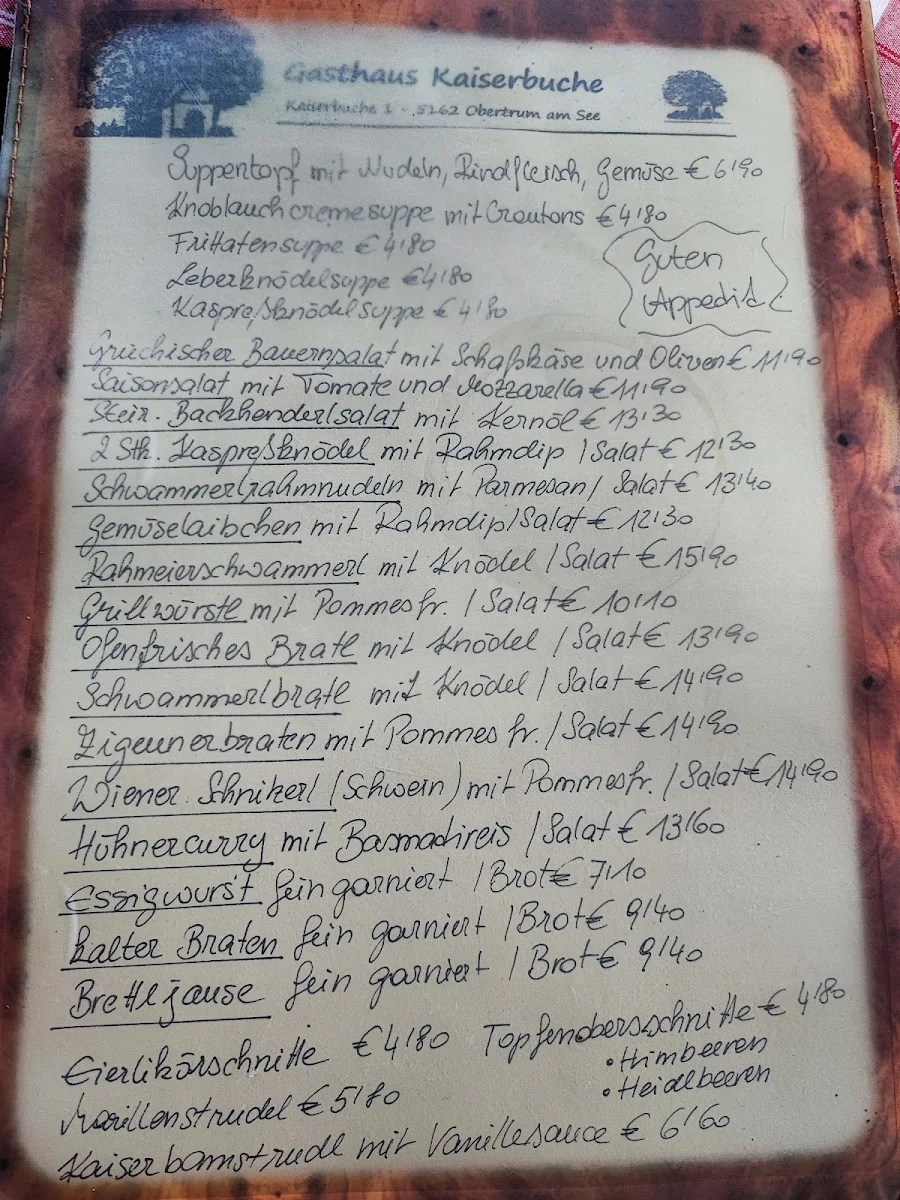 Gasthaus Kaiserbuche
Kaiserbuche 1 - 5162 Obertrum am See
Suppentopf mit Nudeln, Rindfleisch, Gemüse € 6'90
Knoblauchcremesuppe mit Croutons €4'80
Frittatensuppe €4'80
Leberknödelsuppe €4'80
Kaspreßknödelsuppe €4'80
Guten
Appedid
Griechischer Bauernsalat mit Schafskäse und Oliven€ 11'90
Saisonsalat mit Tomate und Mozzarella €11'90
Steir. Backhenderlsalat mit Kernöl € 13'30
2 Stk. Kaspreßknödel mit Rahmdip / Salat € 12'30
Schwammerlrahmnudeln mit Parmesan / Salat € 13'40
Gemüselaibchen mit Rahmdip / Salat € 12'30
Rahmeierschwammerl mit Knödel / Salat € 15'90
Grillwürstl mit Pommes fr. / Salat € 10'10
Ofenfrisches Bratl mit Knödel / Salat € 13'90
Schwammerlbratl mit Knödel / Salat € 14'90
Zigeunerbraten mit Pommes fr. / Salat € 14'90
Wiener Schnitzerl (Schwein) mit Pommes fr. / Salat €14'90
Hühnercurry mit Basmatireis / Salat € 13'60
Essigwurst fein garniert / Brot € 7'10
kalter Braten fein garniert / Brot € 9'40
Brettljause fein garniert / Brot € 9'40
Eierlikörschnitte €4'80 Topfenobersschnitte € 4'80
• Himbeeren
• Heidelbeeren
Marillenstrudel € 5'80
Kaiserbamstrudl mit Vanillesauce € 6'60